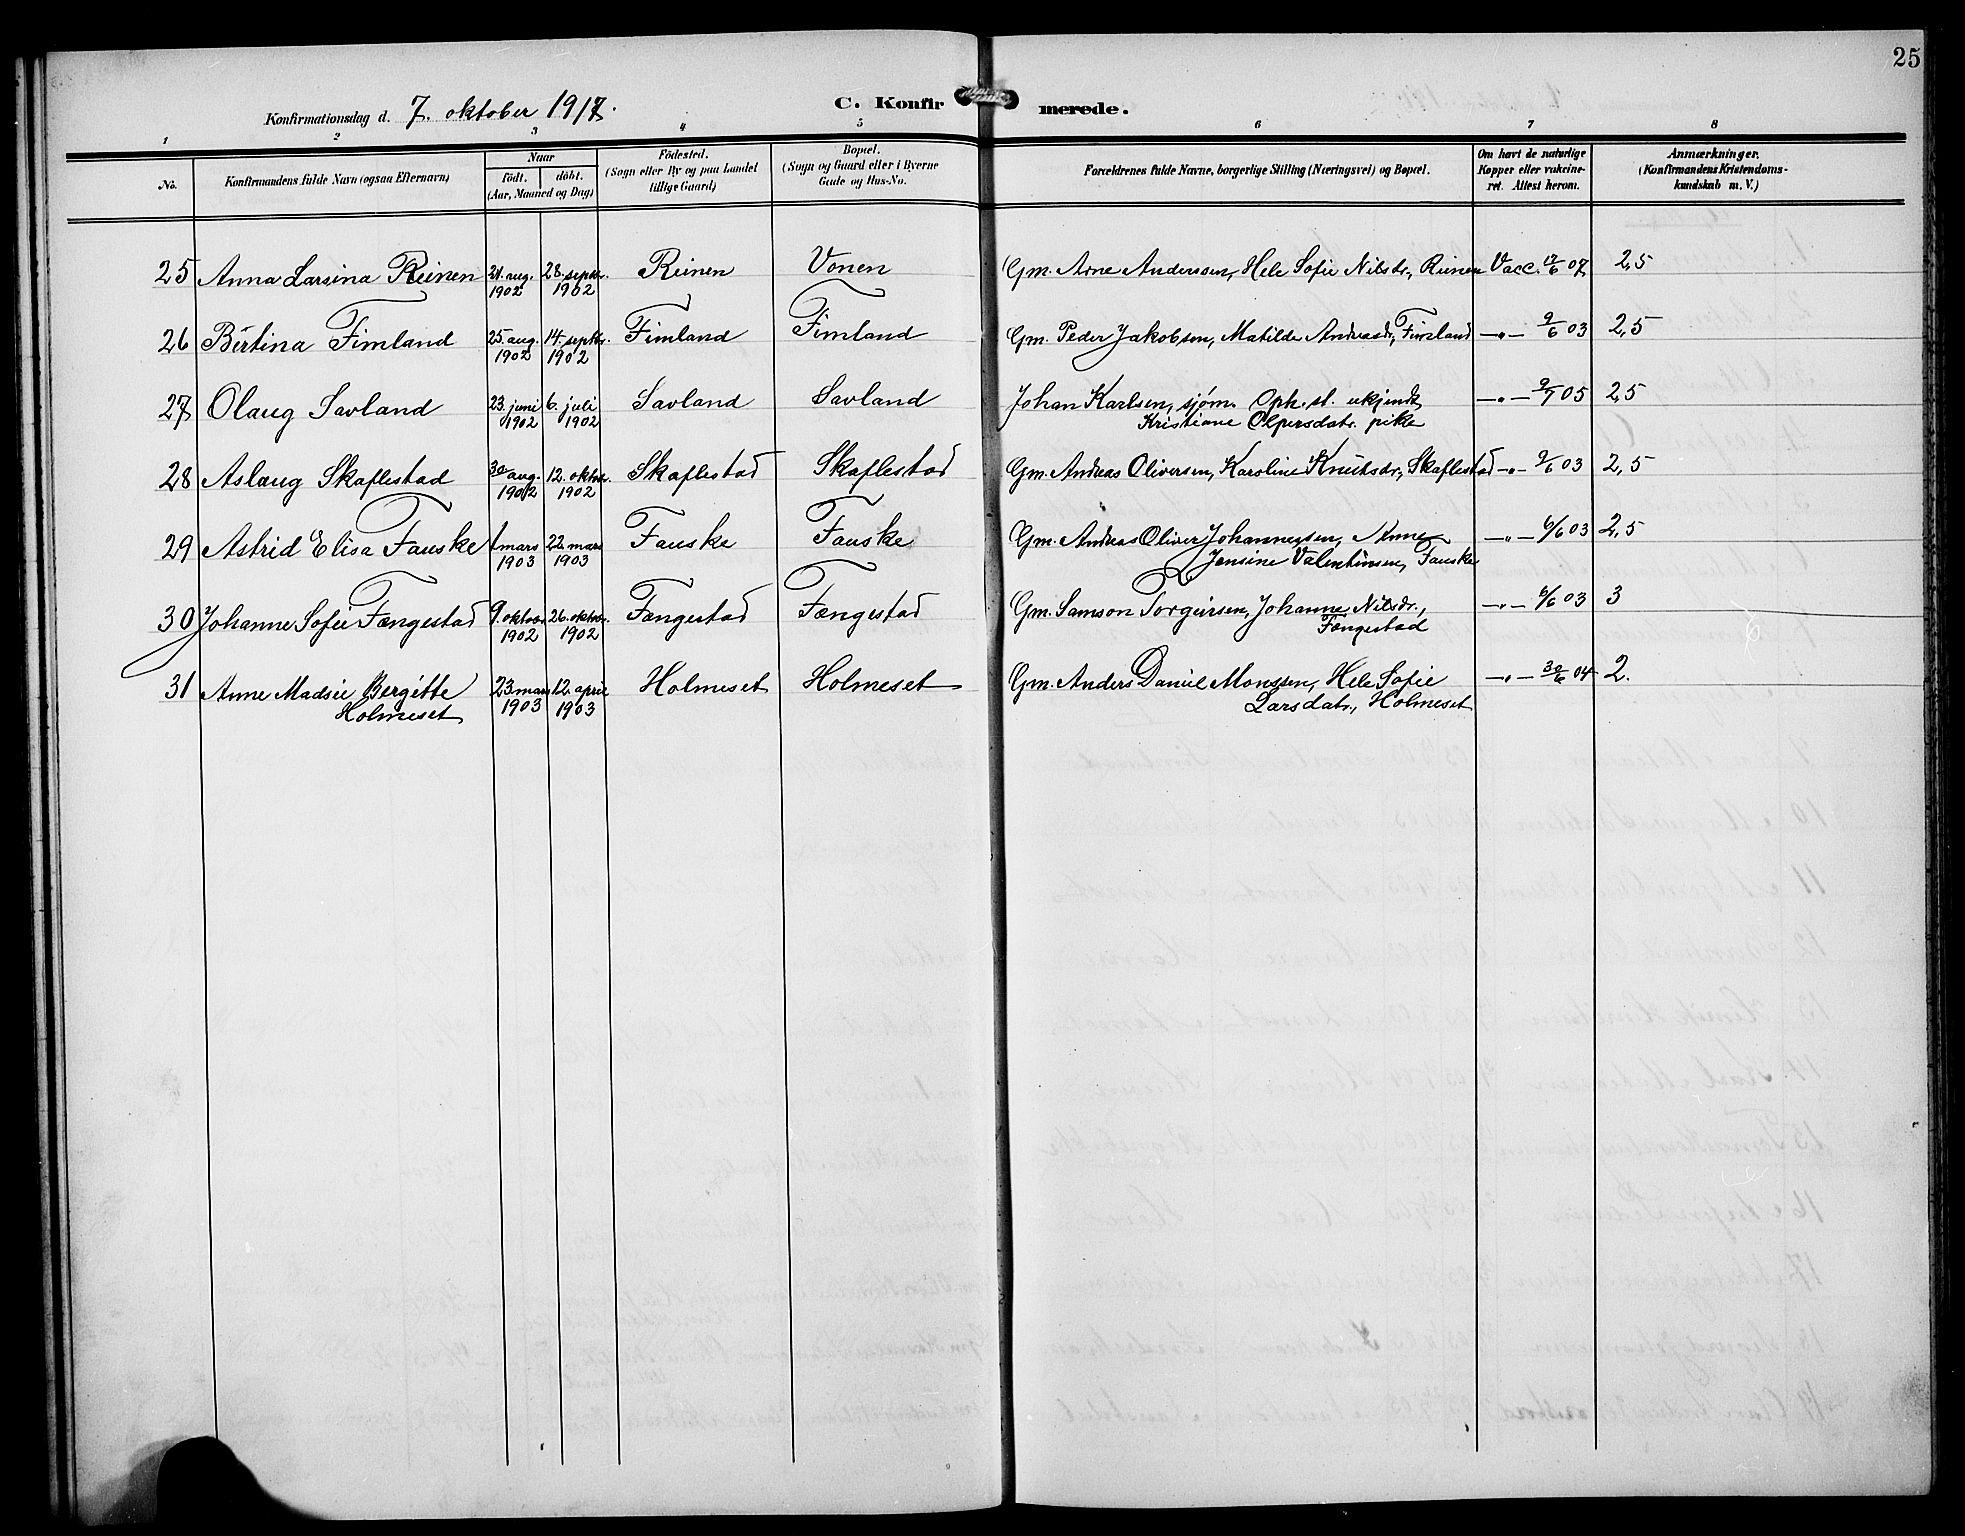 25
Konfirmationsdag d. 7. oktober 1917.
C. Konfirmerede.
1 2 3 4 5 6 7 8
No.
Konfirmandens fulde Navn (ogsaa Efternavn)
Naar
født. døbt.
(Aar, Maaned og Dag)
Fødested.
(Sogn eller By og paa Landet
tillige Gaard)
Bopæl.
(Sogn og Gaard eller i Byerne
Gade og Hus-No.
Forældrenes fulde Navne, borgerlige Stilling (Næringsvei) og Bopæl.
Om havt de naturlige
Kopper eller vakcine-
ret. Attest herom.
Anmærkninger.
(Konfirmandens Kristendoms-
kundskab m. V.)
25 Anna Larsina Reinen 21. aug. 28. septbr. Reinen Vonen Gm. Arne Anderssen, Hele Sofie Nilsdr., Reinen Vacc. 07 2,5
1902 1902
26 Bertina Fimland 25. aug. 14. septbr. Fimland Fimland Gm. Peder Jakobsen, Matilde Andreasdr., Fimland —„— 9/6 03 2,5
1902 1902
27 Olaug Savland 23. juni 6. juli Savland Savland Johan Karlsen, sjøm. Oph. st. ukjendt, —„— 9/7 05 2,5
1902 1902 Kristiane Olpersdatr. pike
28 Aslaug Skaflestad 30 aug. 12. oktbr. Skaflestad Skaflestad Gm. Andreas Oliversen, Karoline Knutsdr., Skaflestad —„— 9/6 03 2,5
1902 1902
29 Astrid Elisa Fauske 1 mars 22. mars Fauske Fauske Gm. Andreas Oliver Johannessen, Anne —„— 6/6 03 2,5
1903 1903 Jensine Valentinsen, Fauske
30 Johanne Sofie Fængestad 9. oktober 26. oktbr. Fængestad Fængestad Gm. Samson Torgeirsen, Johanne Nilsdr., —„— 6/6 03 3
1902 1902 Fængestad
31 Anne Madsie Bergitte 23. mars 12. april Holmeset Holmeset Gm. Anders Daniel Monssen, Hele Sofie —„— 30/6 04 2.
Holmeset 1903 1903 Larsdatr., Holmeset